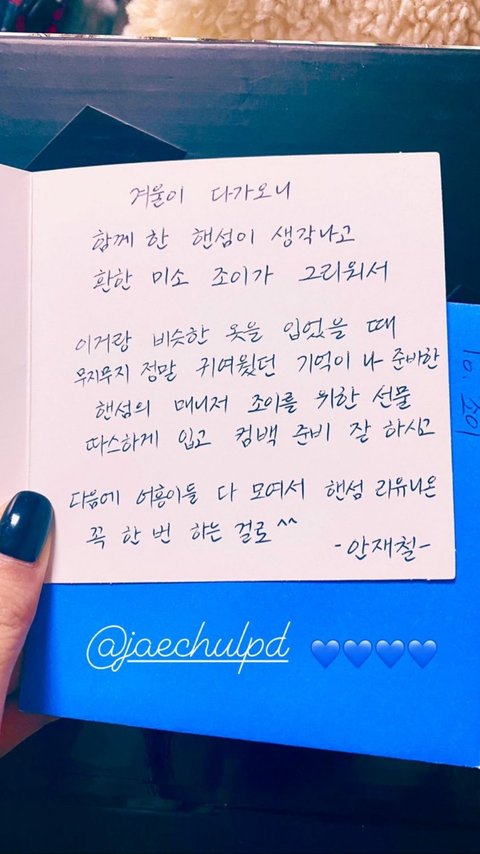 겨울이 다가오니
함께 한 핸섬이 생각나고
환한 미소 조이가 그리워서
이거랑 비슷한 옷을 입었을 때
무지무지 정말 귀여웠던 기억이 나 준비한
핸섬의 매니저 조이를 위한 선물
따스하게 입고 컴백 준비 잘 하시고
다음에 어흥이들 다 모여서 핸섬 리유니온
꼭 한 번 하는 걸로^^
-안재철-
10. 조이
@jaechulpd 💙💙💙💙